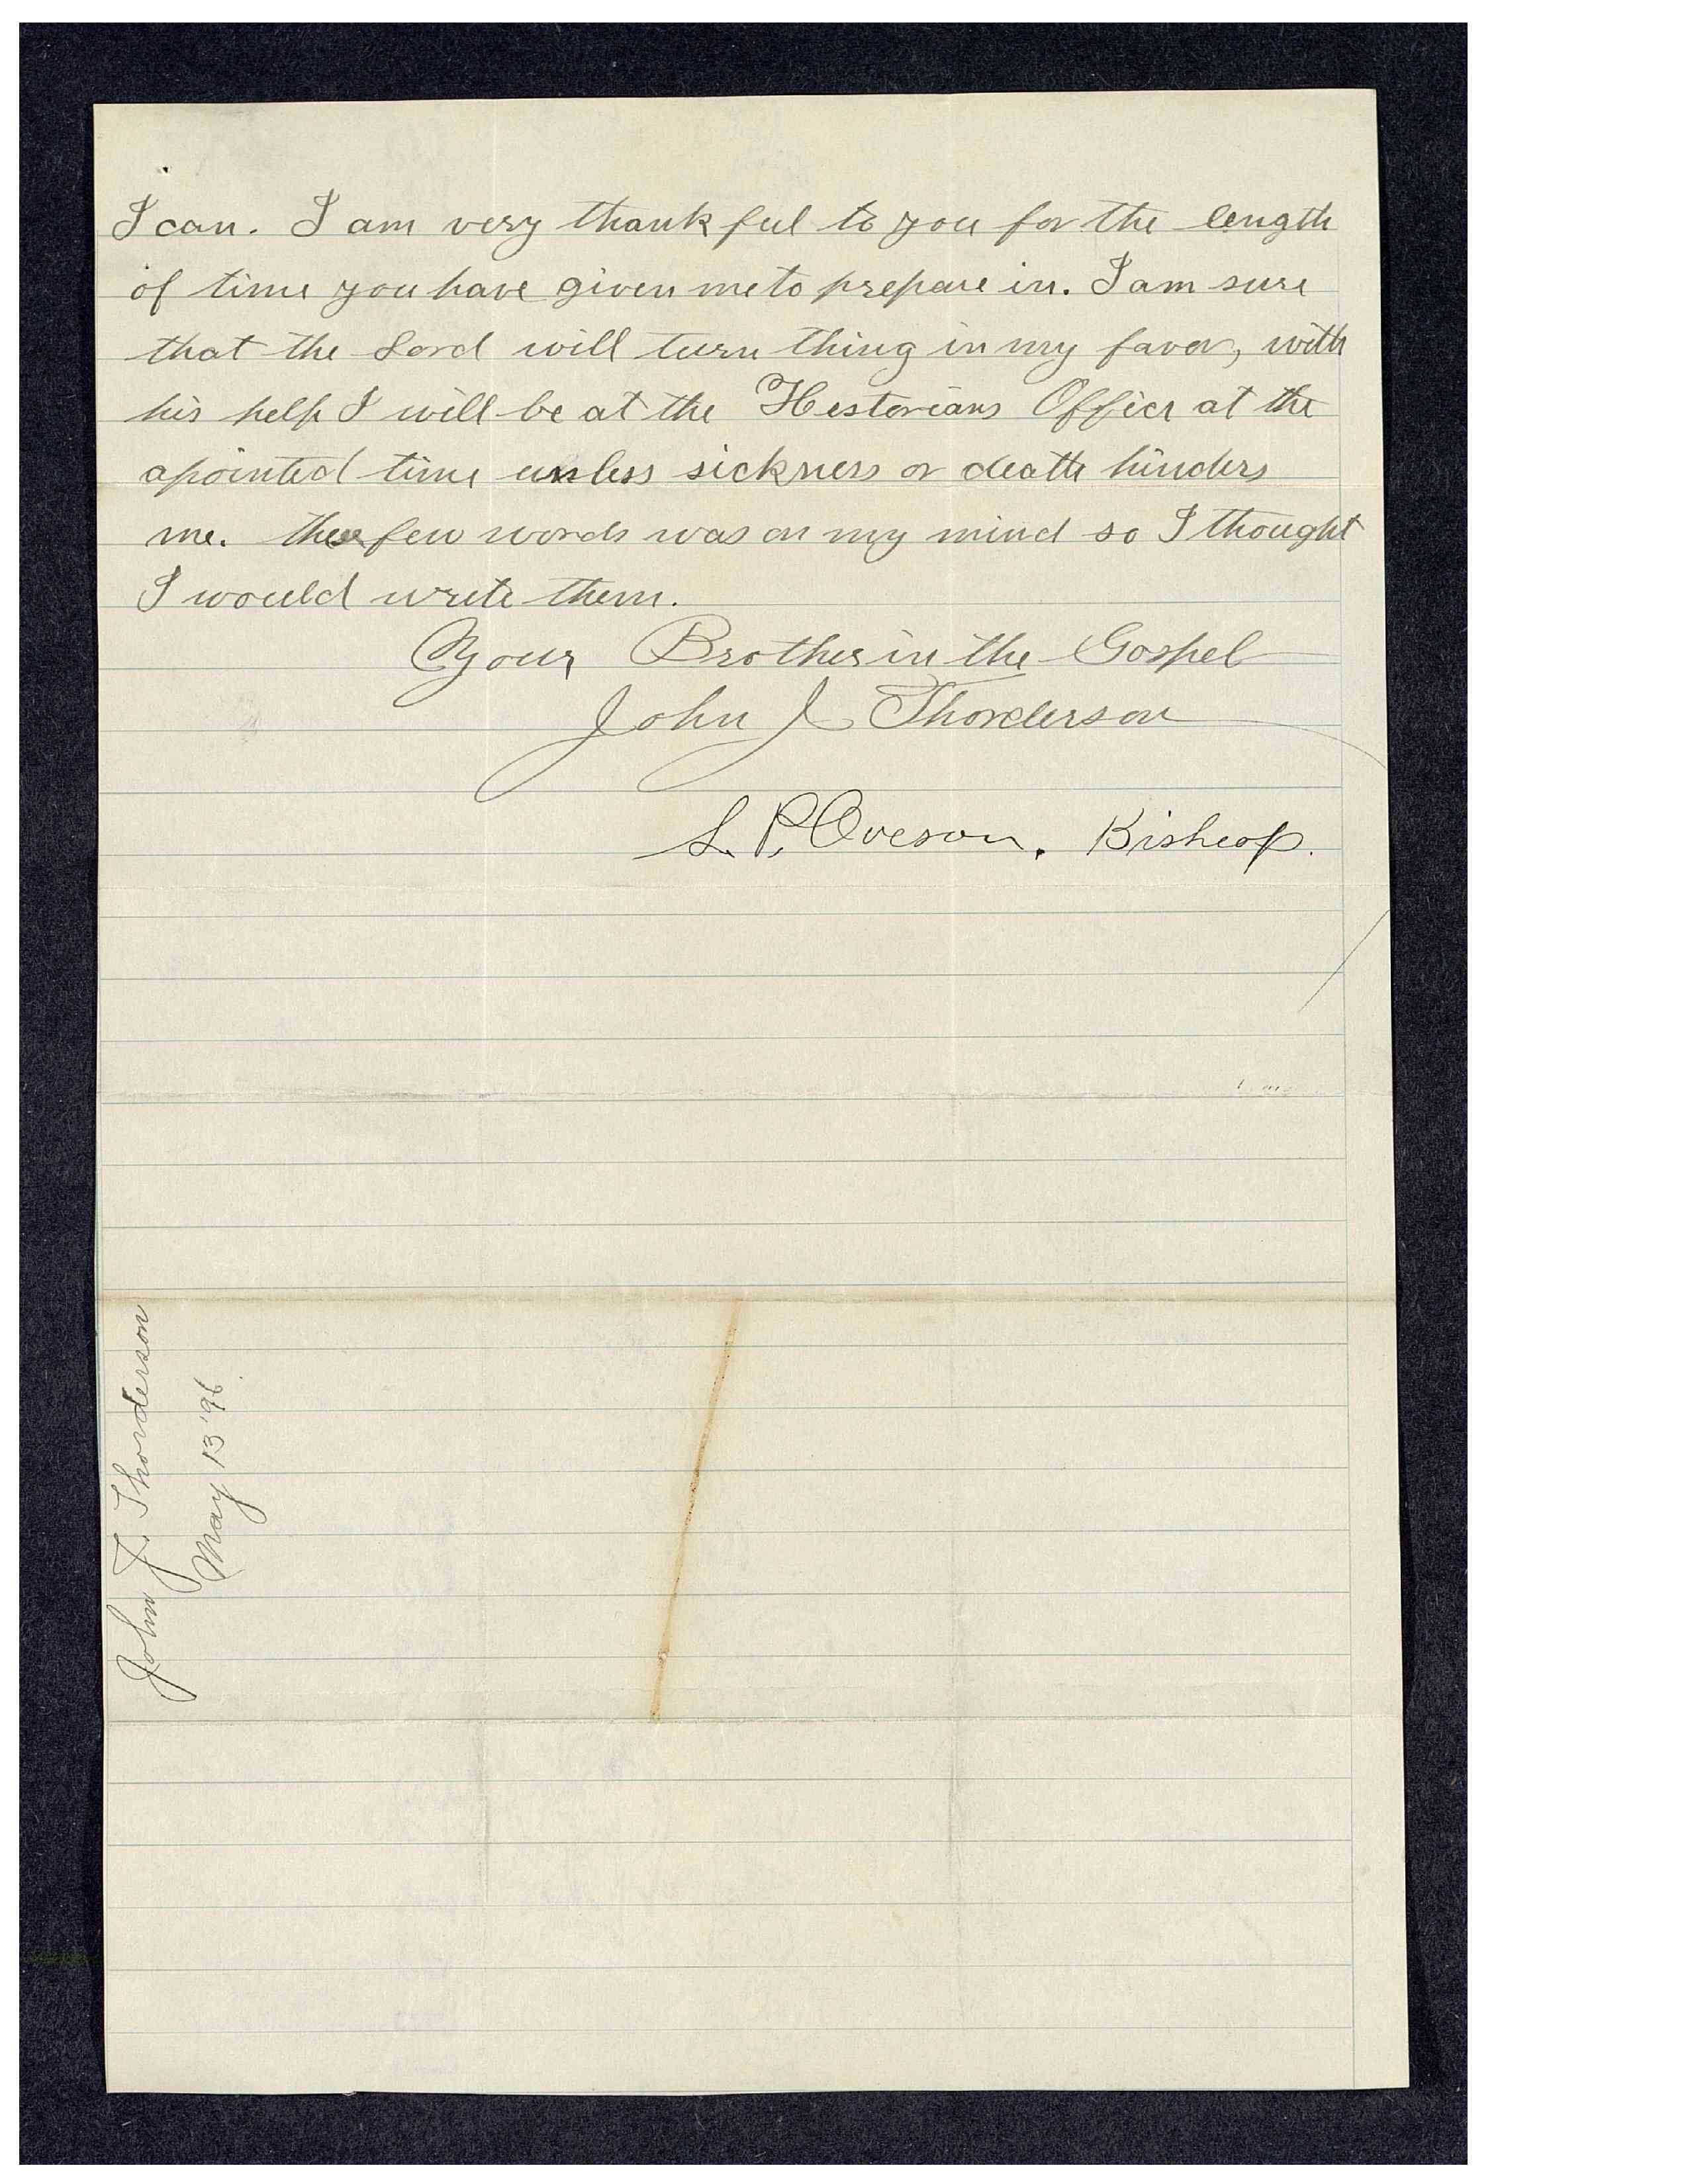 I can. I am very thankful to you for the length
of time you have given me to prepare in. I am sure
that the Lord will turn thing in my favor, with
his help I will be at the Hestorians Office at the
apointed time unless sickness or death hinders
me. these few words was on my mind so I thought
I would write them.
Your Brother in the Gospel
John J Thorderson
L. P. Oveson. Bishop.
John J. Thorderson
May 13 '96.